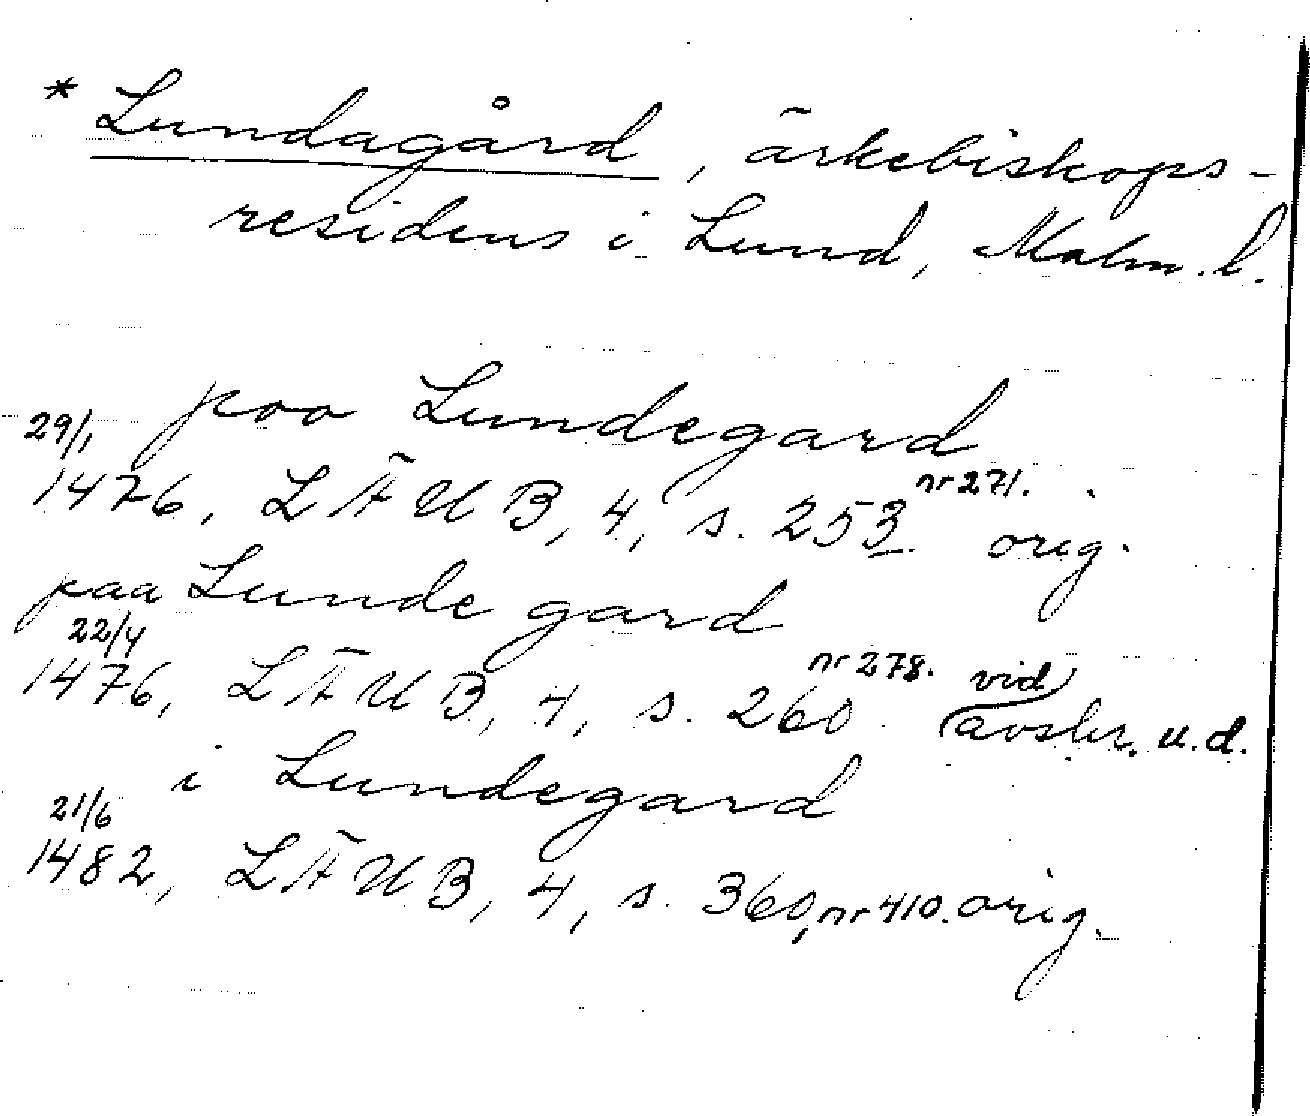 * Lundagård, ärkebiskops-
residens i Lund, Malm. l.
paa Lundegard
29/1 1476, LÄUB, 4, s. 253. nr 271. orig.
paa Lunde gard
22/4 1476, LÄUB, 4, s. 260. nr 278. vid avskr. u.d.
i Lundegard
21/6 1482, LÄUB, 4, s. 360, nr 410. orig.